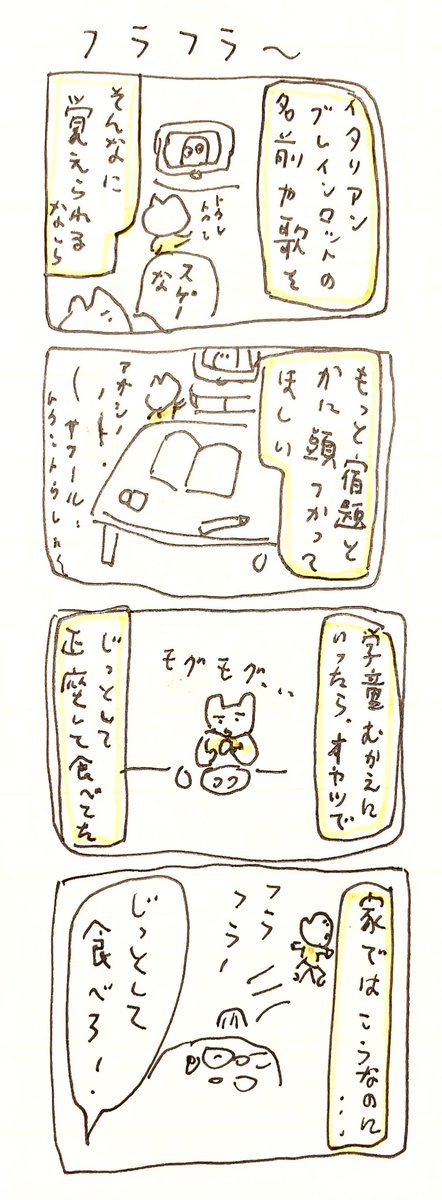 フラフラ〜
イタリアン
ブレインロットの
名前や歌を
そんなに
覚えられる
なら
スゲー
な
もっと宿題と
かに頭つかって
ほしい
学童むかえに
いったら、オヤツで
モグモグ…
じっとして
正座して食べてた
家ではこうなのに
…
フラ
フラー
じっとして
食べろー!